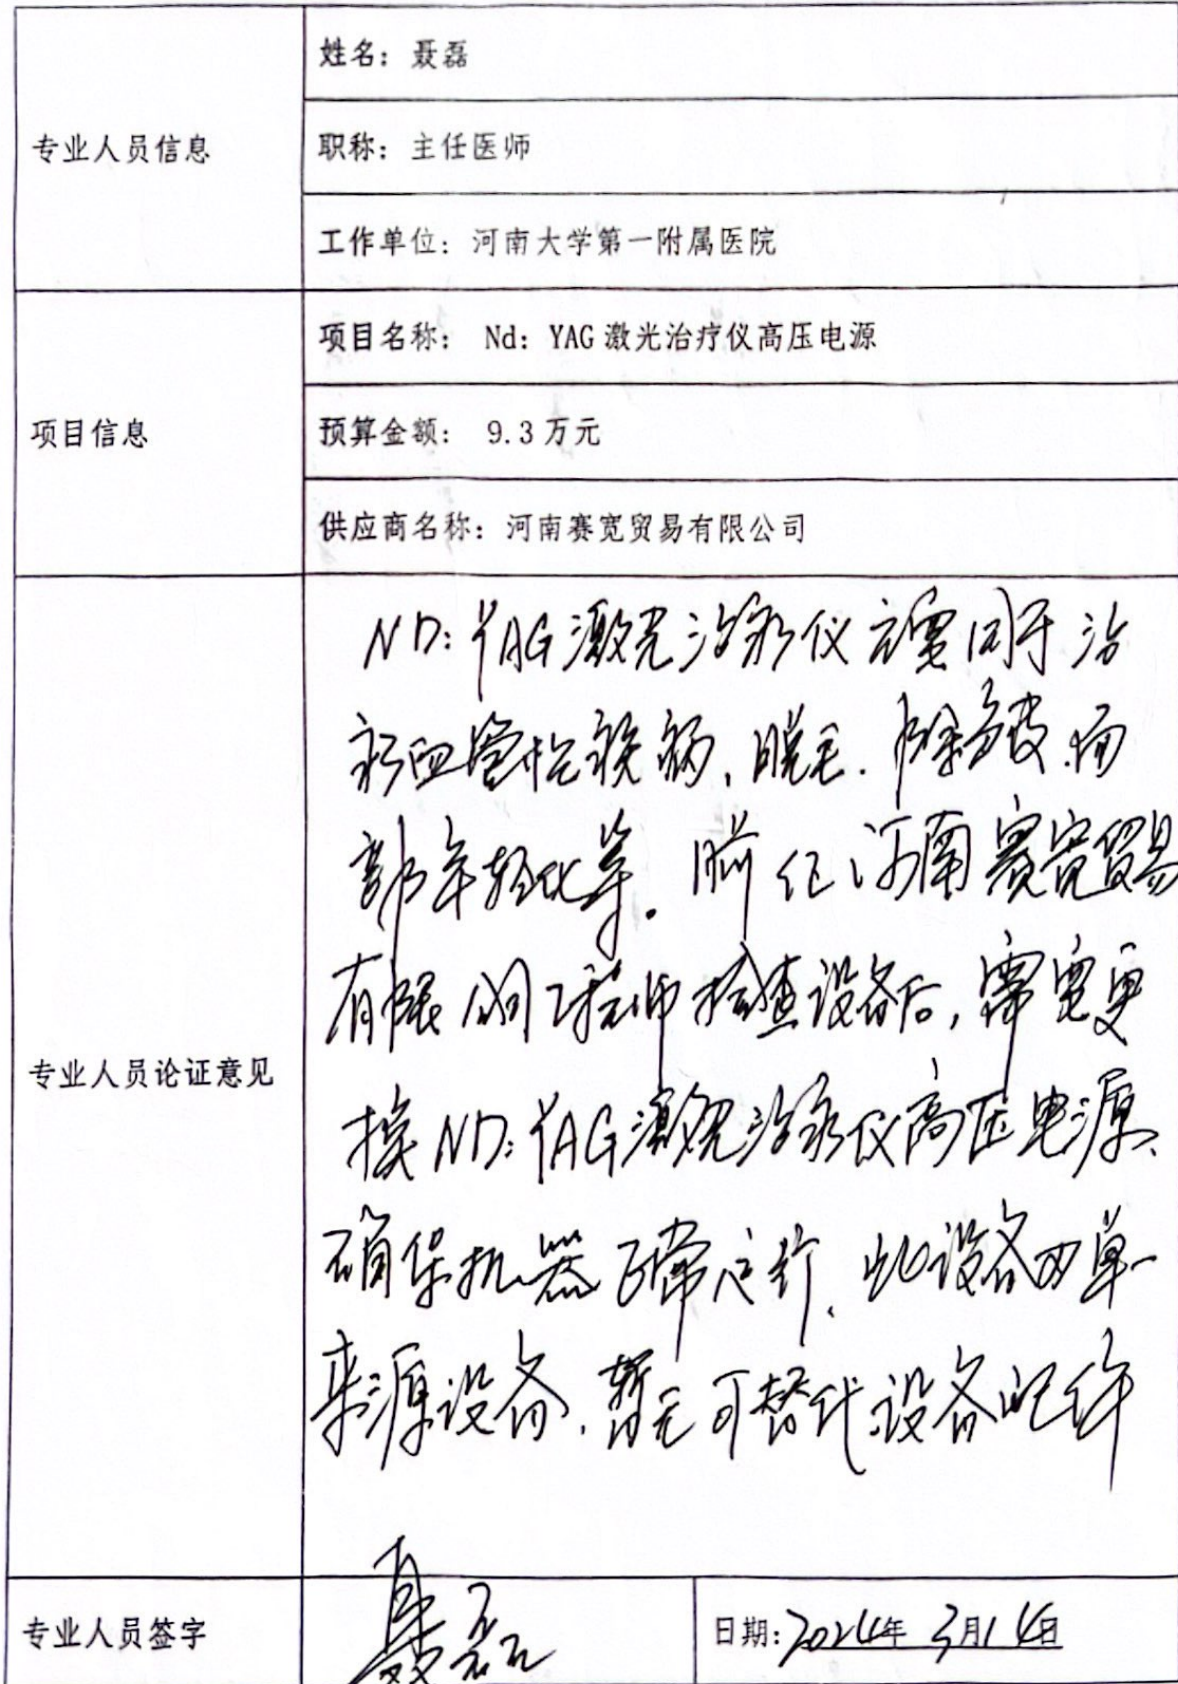 专业人员信息
姓名：聂磊
职称：主任医师
工作单位：河南大学第一附属医院
项目信息
项目名称： Nd：YAG 激光治疗仪高压电源
预算金额： 9.3 万元
供应商名称：河南赛宽贸易有限公司
专业人员论证意见
ND：YAG激光治疗仪主要用于治
疗血管性疾病、脱毛、除皱、面
部年轻化等。前经河南赛宽贸易
有限公司工程师检查设备后，需要更
换ND：YAG激光治疗仪高压电源、
确保机器正常运行、此设备为单一
来源设备、暂无可替代设备配件
专业人员签字
聂磊
日期：2024年 3月14日